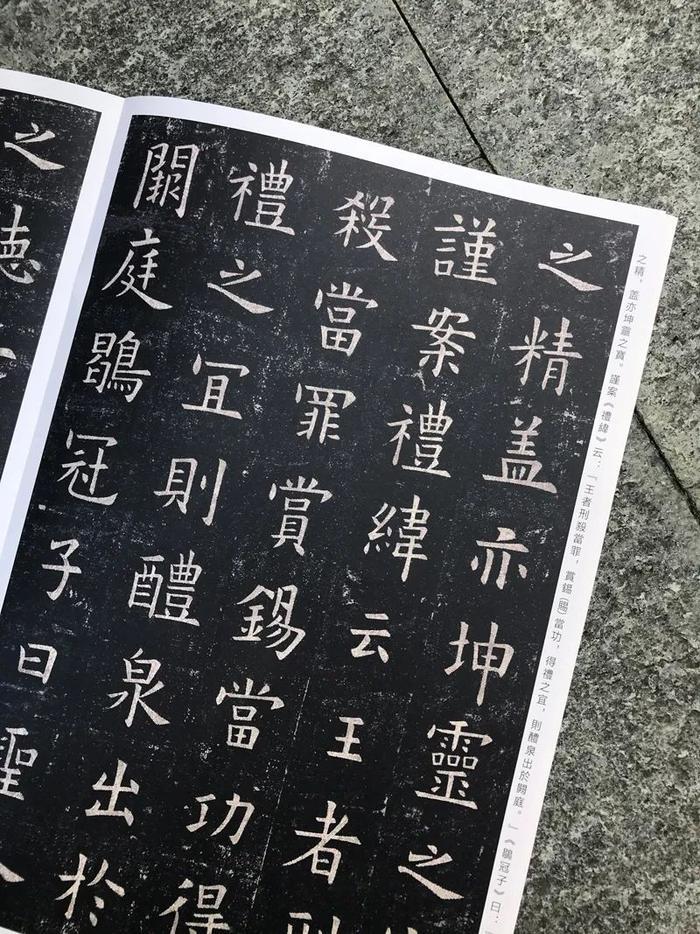 之精，盖亦坤靈之寶。謹案《禮緯》云：「王者刑殺當罪，賞錫（賜）當功，得禮之宜，則醴泉出於闕庭。」《鶡冠子》曰：「
之精盖亦坤靈之
謹案禮緯云王者刑
殺當罪賞錫當功得
禮之冝則醴泉出扵
闕庭鶡冠子曰聖人
之徳